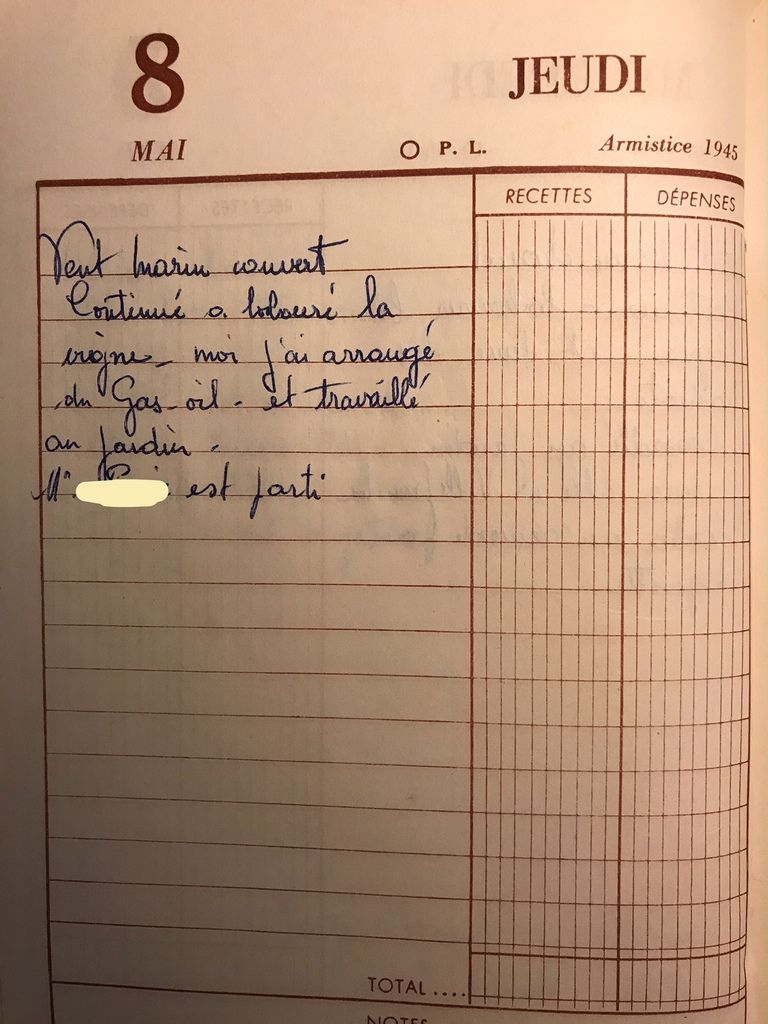 8
JEUDI
MAI
P. L.
Armistice 1945
RECETTES
DÉPENSES
Vent marin couvert
Continué a labouré la
vigne - moi j'ai arrangé
du Gas-oil - et travaillé
au jardin.
Mr est parti
TOTAL ....
NOTES